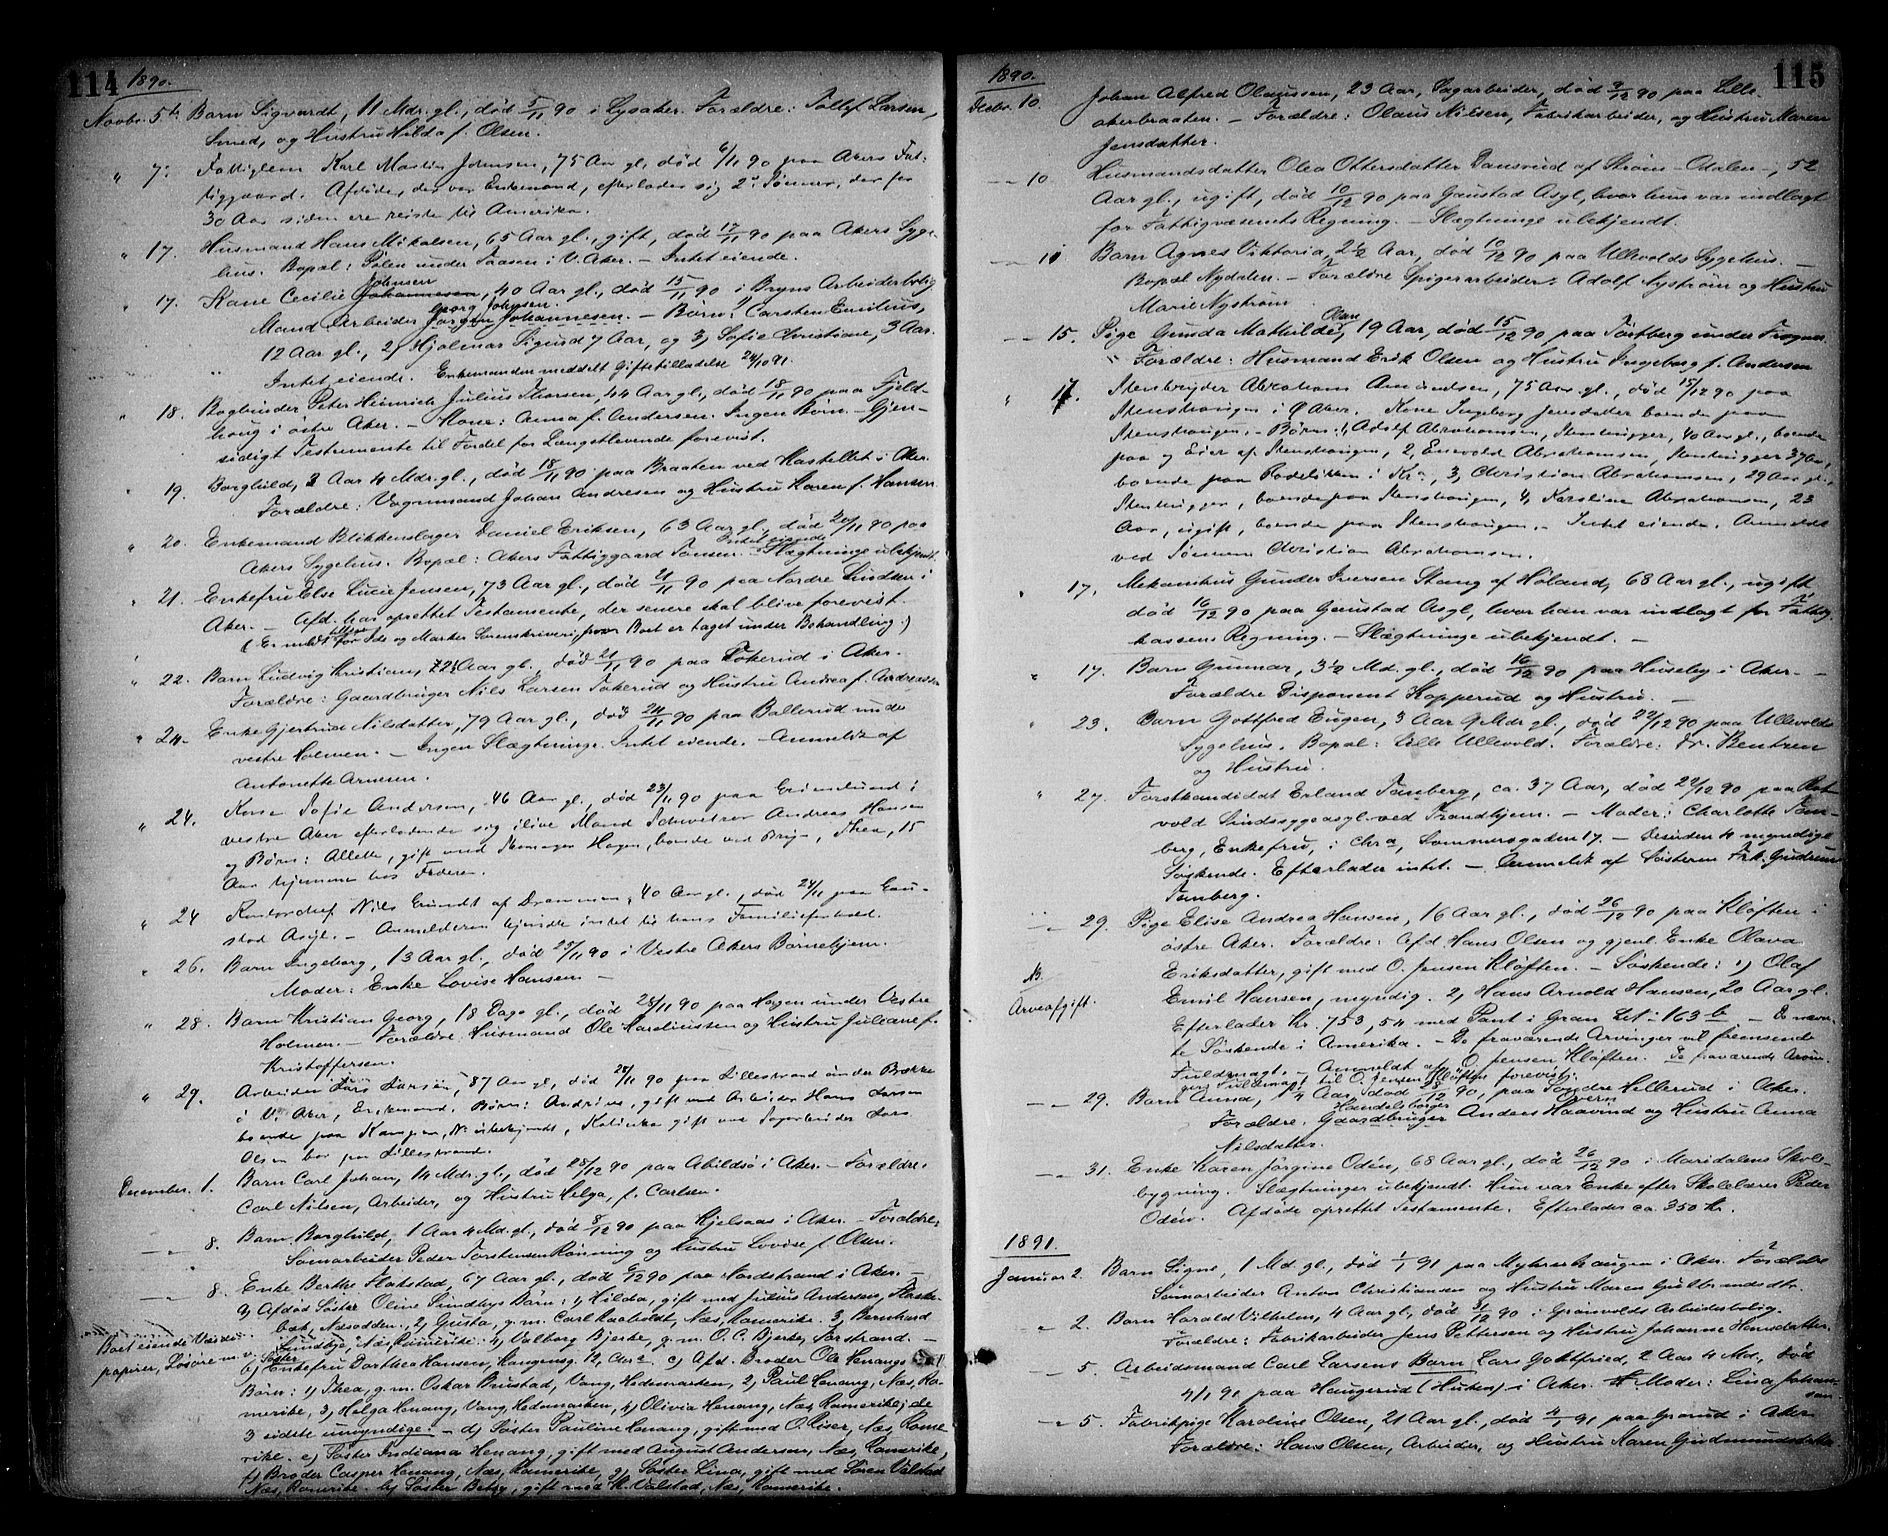 114
1890.
Novbr. 5te Barn Sigvardt, 11 Mdr. gl., død 5/11 90 i Lysaker. Forældre: Tollef Larsen,
Smed, og Hustru Hilda f. Olsen.
" 7. Fattiglem Karl Martin Johnsen, 75 Aar gl., død 6/11 90 paa Akers Fat-
tiggaard. Afdøde, der var Enkemand, efterlader sig 2 Sønner, der for
30 Aar siden ere reiste til Amerika.
" 17. Husmand Hans Mikalsen, 65 Aar gl., gift, død 17/11 90 paa Akers Syge-
hus. Bopæl: Pølen under Taasen i V. Aker. – Intet eiende.
Johnsen
" 17. Kone Cecilie Johannesen, 40 Aar gl., død 15/11 90 i Bryns Arbeiderbolig
Georg Johnsen.
Mand Arbeider Jørgen Johannesen. – Børn: 1) Carsten Emilius,
12 Aar gl., 2) Hjalmar Sigurd 7 Aar, og 3, Sofie Christiane, 3 Aar.
Intet eiende. Enkemanden meddelt Giftetilladelse 24/10 91.
" 18. Bogbinder Peter Heinrich Julius Thorsen, 44 Aar gl., død 18/11 90 paa Fjeld-
haug i østre Aker. – Kone: Anna f. Andersen. Ingen Børn. – Gjen-
sidigt Testamente til Fordel for Længstlevende forevist.
" 19. Borghild, 2 Aar 4 Mdr. gl., død 18/11 90 paa Braaten ved Kastellet i Aker.
Forældre: Vognmand Johan Andresen og Hustru Karen f. Hansen
" 20. Enkemand Blikkenslager Daniel Eriksen, 63 Aar gl., død 20/11 90 paa
Intet eiende
Akers Sygehus. Bopæl: Akers Fattiggaard Tonsen. – Slægtninge ubekjendt.
" 21. Enkefru Else Lucie Jensen, 73 Aar gl., død 21/11 90 paa Nordre Lindern i
Aker. – Afd. har oprettet Testamente, der senere skal blive forevist.
(: Er meldt for Ide og Marker Sorenskriveri, hvor Boet er taget under Behandling:)
" 22. Barn Ludvig Kristian, 2 1/2 Aar gl., død 21/11 90 paa Tokerud i Aker.
Forældre: Gaardbruger Nils Larsen Tokerud og Hustru Andrea f. Andreassen
" 24. Enke Gjertrud Nilsdatter, 79 Aar gl., død 24/11 90 paa Ballerud under
vestre Holmen. – Ingen Slægtninge. Intet eiende. – Anmeldt af
Antonette Arnesen.
" 24. Kone Sofie Andersen, 46 Aar gl., død 23/11 90 paa Grimelund i
vestre Aker efterladende sig ilive Mand Andreas Hansen
og Børn: Allette, gift med Hagen, boende ved Bryn, Thea, 15
Aar hjemme hos Faderen.
" 24 Kontorchef Nils Grundt af Drammen, 40 Aar gl., død 24/11 paa Gau-
stad Asyl. – Anmelderen kjendte intet til hans Familieforhold.
" 26. Barn Ingeborg, 13 Aar gl., død 25/11 90 i Vestre Akers Børnehjem.
Moder: Enke Lovise Hansen –
" 28. Barn Kristian Georg, 18 Dage gl., død 28/11 90 paa Hagen under Vestre
Holmen. – Forældre: Husmand Ole Karelinssen og Hustru Juliane f.
Kristoffersen.
" 29. Arbeider Lars Larsen, 87 Aar gl., død 28/11 90 paa Lillestrand under Bække
i V. Aker, Enkemand. Børn: Andrine, gift med Arbeider Hans Larsen
boende paa Kampen, No ubekjendt, Katinka gift med Sagarbeider Lars
Olsen bor paa Lillestrand.
December. 1. Barn Carl Johan, 14 Mdr. gl., død 28/12 90 paa Abildsø i Aker. – Forældre:
Carl Nilsen, Arbeider, og Hustru Helga, f. Carlsen.
" 8. Barn Borghild, 1 Aar 4 Md. gl., død 8/12 90 paa Kjelsaas i Aker. – Forældre:
Tomtarbeider Peder Torstensen Rønning og Hustru Lovise f. Olsen.
" 8. Enke Berthe Flatstad, 67 Aar gl., død 6/12 90 paa Nordstrand i Aker. –
a) Afdød Søster Oline Sundbyes Børn: 1, Hilda, gift med Julius Andersen, Flaske-
bæk, Næsodden. 2, Gusta, g. m. Carl Raaholdt, Næs, Romerike. 3, Bernhard
Boet eiende Værdi-
papirer, Løsøre m. v.
Sundbye, Næs, Romerike. 4, Valborg Bjerke, g. m. O. C. Bjerke, Torstrand. –
Søster
b, Enkefru Dorthea Hansen, Kongensg. 12, c) Afd. Broder Ole Henangs
Børn: 1, Thea, g. m. Oskar Brustad, Vang, Hedemarken, 2, Paul Henang, Næs, Ro-
merike, 3, Helga Henang, Vang, Hedemarken, 4, Olivia Henang, Næs, Romerike; de
3 sidste umyndige. – d, Søster Pauline Henang, gift med O. Riser, Næs, Rome-
rike. e, Søster Indiana Henang, gift med August Andersen, Næs, Romerike,
f, Broder Casper Henang, Næs, Romerike, g, Søster Lina, gift med Søren Valstad
Næs, Romerike. h, Søster Betsy, gift med K. Valstad, Næs, Romerike.
115
1890.
Decbr. 10. Johan Alfred Olaussen, 23 Aar, Sagarbeider, død 9/12 90 paa Lille-
akerbraaten. – Forældre: Olaus Nilsen, Fabrikarbeider, og Hustru Maren
Jensdatter.
" 10 Husmandsdatter Olea Ottersdatter Dansrud af Strøm – Odalen –, 52
Aar gl., ugift, død 10/12 90 paa Gaustad Asyl, hvor hun var indlagt
for Fattigvæsenets Regning. – Slægtninge ubekjendt.
" 11 Barn Agnes Viktoria, 2 1/2 Aar, død 10/12 90 paa Ullevolds Sygehus. –
Bopæl Nydalen. – Forældre Spigerarbeider Adolf Nystrøm og Hustru
Marie Nystrøm.
Olsen
" 15. Pige Gunda Mathilde, 19 Aar, død 15/12 90 paa Tostberg under Frogner
Forældre: Husmand Erik Olsen og Hustru Ingeborg f. Andersen
" 17. Stenbryder Abraham Amundsen, 75 Aar gl., død 15/12 90 paa
Stenshaugen i Ø. Aker. Kone Ingeborg Jensdatter boende paa
Stenshaugen. – Børn: 1, Adolf Abrahamsen, Stenhugger, 40 Aar gl., boende
paa og Eier af Stenshaugen, 2, Enevold Abrahamsen, Stenhugger 37 Aar,
boende paa Rodeløkken i Kra., 3, Christian Abrahamsen, 29 Aar gl.,
Stenhugger, boende paa Stenshaugen, 4, Karoline Abrahamsen, 23
Aar, ugift, boende paa Stenshaugen. – Intet eiende. Anmeldt
ved Sønnen Christian Abrahamsen.
" 17. Mekanikus Gunder Iversen Stang af Høland, 68 Aar gl., ugift,
død 16/12 90 paa Gaustad Asyl, hvor han var indlagt for Fattig-
kassens Regning. – Slægtninge ubekjendt. –
" 17. Barn Gunnar, 3 1/2 Md. gl., død 16/12 90 paa Huseby i Aker. –
Forældre Disponent Kopperud og Hustru. –
" 23. Barn Gottfred Eugen, 3 Aar 9 Mdr. gl., død 22/12 90 paa Ullevolds
Sygehus. Bopæl: Lille Ullevold. Forældre: Fr. Bentzen
og Hustru.
" 27. Forstkandidat Erland Tanberg, ca. 37 Aar, død 22/12 90 paa Rot-
vold Sindssygeasyl ved Trondhjem. – Moder: Charlotte Tan-
berg, Enkefru, i Chra, Sommersgaden 17. – Desuden 4 myndige
Søskende. Efterlader intet. – Anmeldt af Søsteren Frk. Gudrun
Tanberg.
" 29. Pige Elise Andrea Hansen, 16 Aar gl., død 26/12 90 paa Kløften i
østre Aker. Forældre: Afd. Hans Olsen og gjenl. Enke Olava
N.
Arveafgift.
Eriksdatter, gift med O. Jensen Kløften. – Søskende: 1) Olaf
Emil Hansen, myndig. 2, Hans Arnold Hansen, 20 Aar gl.
Efterlader Kr. 753,54 med Pant i Gran Lit: 163 b – De nævn-
te Søskende i Amerika. – De fraværende Arvinger vil fremsende
Fuldmagt. – Anmeldt af O. Jensen Kløften. De fraværende Arvin-
gers Fuldmagt til O. Jensen Kløften forevist.
" 29. Barn Anna, 1/4 Aar, død 28/12 90, paa Søndre Hellerud i Aker.
Handelsborger Overn
Forældre: Gaardbruger Anders Haavind og Hustru Anna
Nilsdatter.
" 31. Enke Karen Jørgine Odén, 68 Aar gl., død 26/12 90 i Maridalens Skole-
bygning. Slægtninger ubekjendt. Hun var Enke efter Skolelærer Peder
Odén. Afdøde oprettet Testamente. Efterlader ca. 350 Kr.
1891.
Januar 2. Barn Signe, 1 Md. gl., død 1/1 91 paa Myhrerhaugen i Aker. Forældre
Tomtarbeider Anton Christiansen og Hustru Maren Gulbrandsdtr.
" 2. Barn Harald Vilhelm, 4 Aar gl., død 31/12 90 i Granvolds Arbeiderbolig.
Forældre: Fabrikarbeider Jens Pettersen og Hustru Johanne Hansdatter.
" 5. Arbeidsmand Carl Larsens Barn Lars Gottfried, 2 Aar 4 Md., død
4/1 91 paa Haugerud (Husken) i Aker. Moder: Lina Johan-
sen
" 5. Fabrikpige Karoline Olsen, 21 Aar gl., død 4/1 91 paa Grorud i Aker
Forældre: Hans Olsen, Arbeider, og Hustru Karen Gudmundsdatter